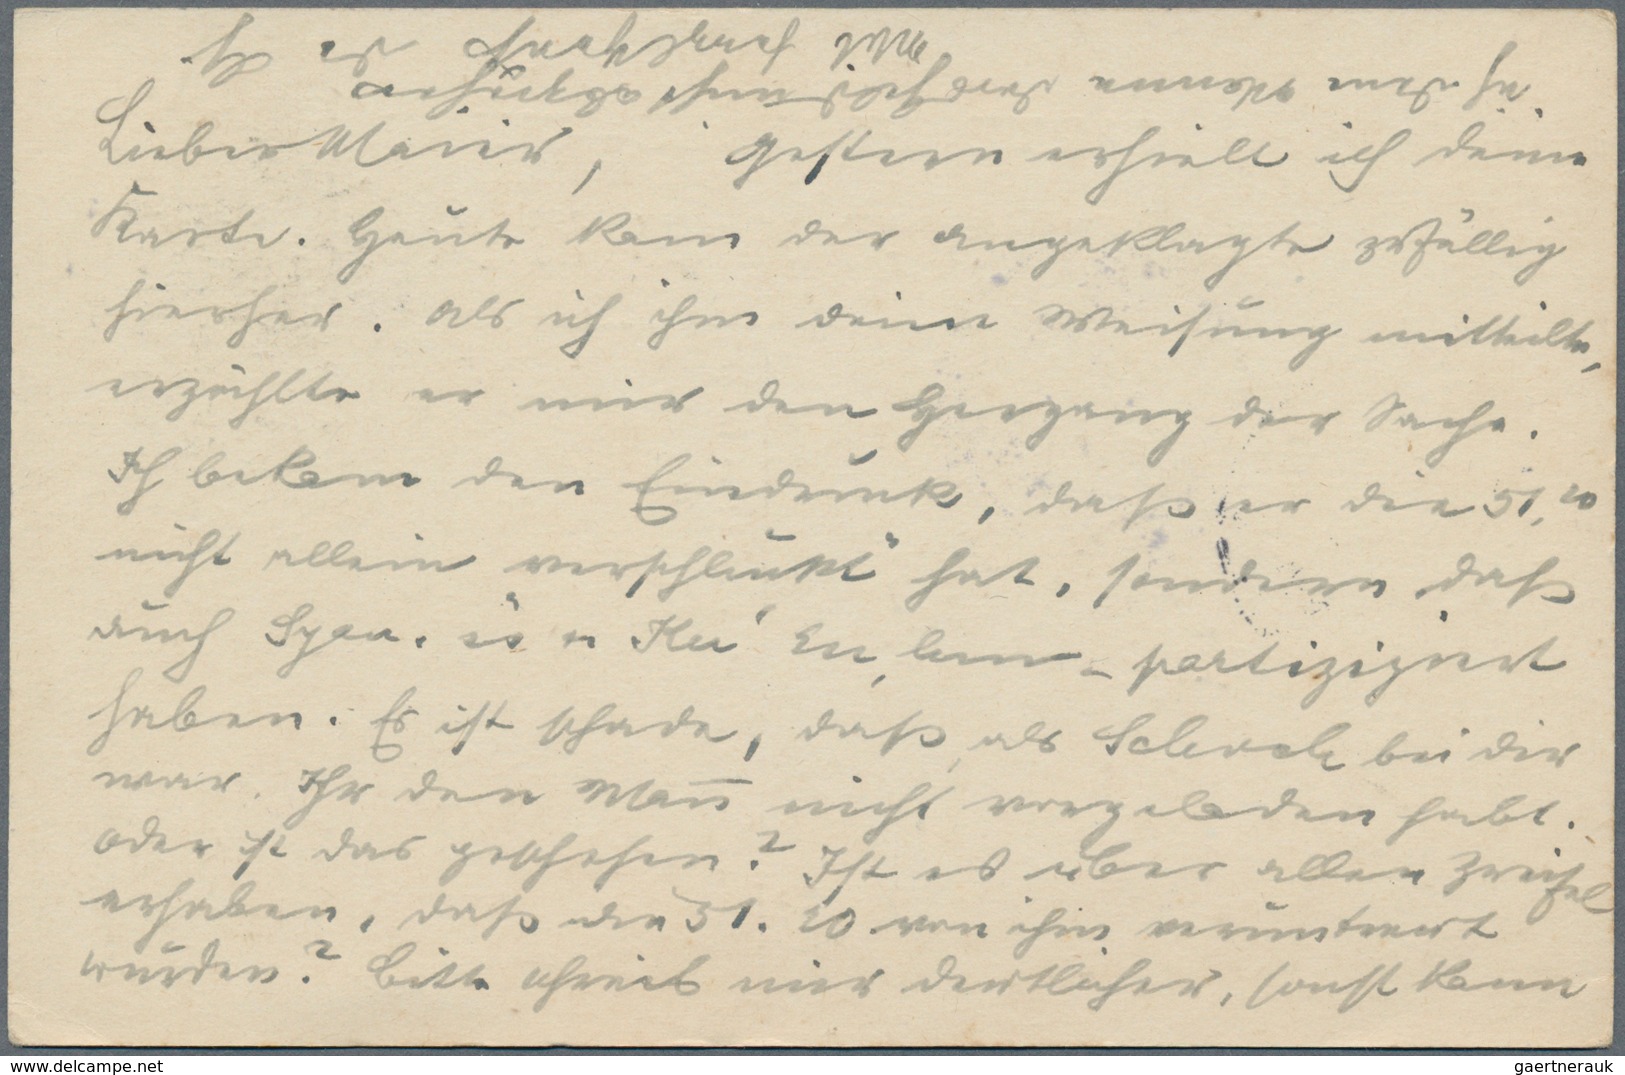 Lieber Maier, Gestern erhielt ich deine
Karte. Heute kam der angeklagte zufällig
hierher. Als ich ihm deine Weisung mitteilte,
erzählte er mir den Hergang der Sache.
Ich bekam den Eindruck, daß er die 51,20
nicht allein „verschluckt“ hat, sondern daß
auch partizipiert
haben. Es ist schade, daß, als bei dir
war, Ihr den Mann nicht vorgeladen habt.
Oder ist das geschehen? Ist es über allen Zweifel
erhaben, daß die 51.20 von ihm veruntreut
wurden? Bitte schreib mir deutlicher, sonst kann
ich dem Manne das Geld nicht
Mit
gaertnerauk.com